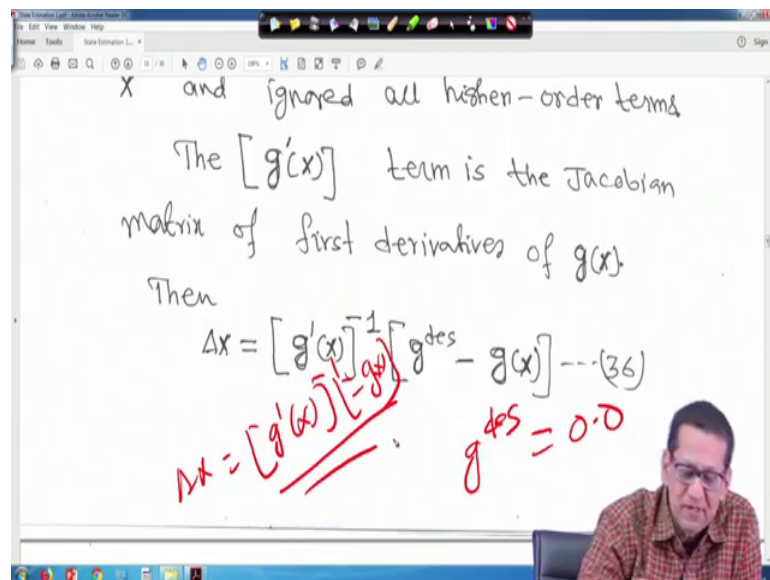 State Estimation 1.pdf - Adobe Acrobat Reader DC
File Edit View Window Help
Home Tools State Estimation 1... × Sign
X and ignored all higher-order terms
The [g'(x)] term is the Jacobian
matrix of first derivatives of g(x).
Then
Δx = [g'(x)]⁻¹ [g^des - g(x)] ---- (36)
Δx = [g'(x)]⁻¹ [-g(x)]
g^des = 0.0